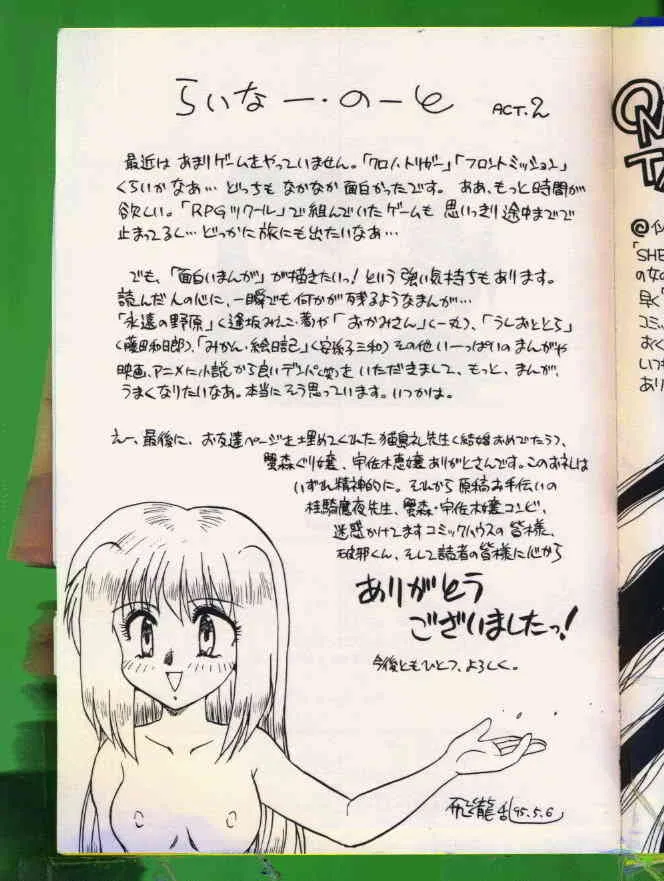 らいなー・のーと ACT.2
最近は あまりゲームをやっていません。「クロノ・トリガー」「フロントミッション」
くらいかなあ… どっちも なかなか面白かったです。 ああ、もっと時間が
欲しい。「RPGツクール」で組んでいたゲームも 思いっきり途中までで
止まってるし… どっかに旅にも出たいなあ…
でも、「面白いまんが」が描きたいっ! という強い気持ちもあります。
読んだ人の心に、一瞬でも何かが残るようなまんが…
「永遠の野原」<逢坂みえこ・著>や「おかみさん」<一丸>、「うしおととら」
<藤田和日郎>、「みかん・絵日記」<安孫子三和>その他いーっぱいのまんがや
映画、アニメに小説から良いデンパ<笑>を いただきまして、もっと、まんが、
うまくなりたいなあ。本当にそう思っています。いつかは。
えー、最後に、お友達ページを埋めてくれた 先生<結婚おめでたう>、
蟹森ぐり嬢、宇佐木恵嬢ありがとさんです。このお礼は
いずれ精神的に。それから 原稿お手伝いの
桂騎魔夜先生、蟹森・宇佐木嬢コンビ、
迷惑かけてますコミックハウスの皆様、
破邪くん、そして読者の皆様に心から
ありがとう
ございましたっ!
今後ともひとつ、よろしく。
飛龍乱 '95.5.6
ON
TA
「SHE
の女の
早く
コミッ
おく
いつも
あり